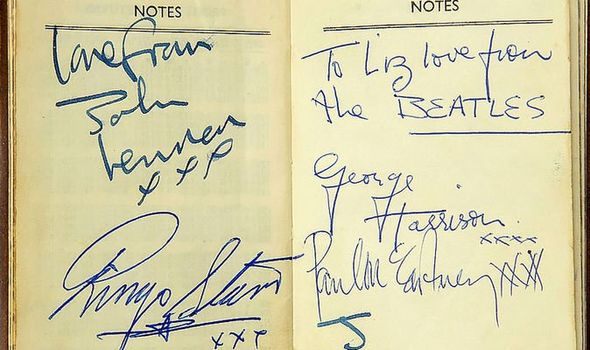 NOTES
love from
John
Lennon
xxx
Ringo Starr
xxx
NOTES
To Liz love from
the BEATLES
George
Harrison.
xxxx
Paul McCartney XXX